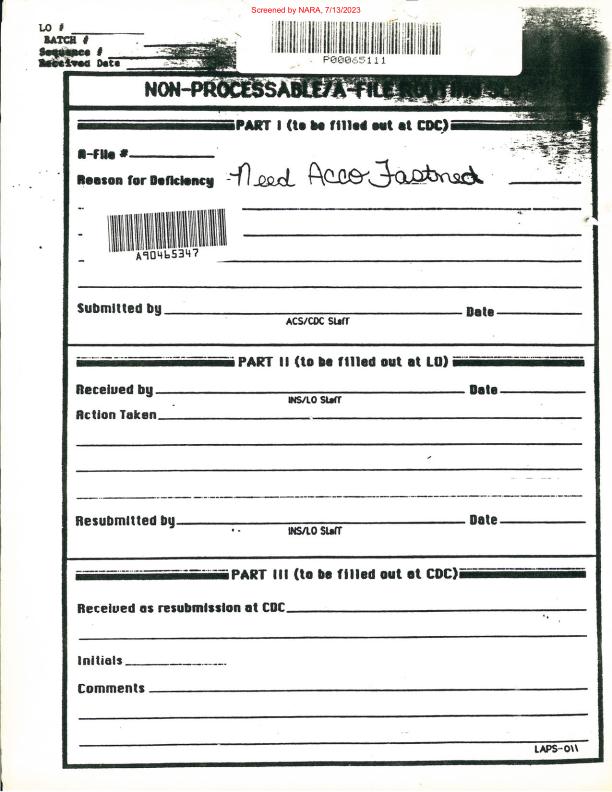 Screened by NARA, 7/13/2023
LO #
BATCH #
Sequence #
Received Date
P00065111
NON-PROCESSABLE/A-FILE ROUTING
PART I (to be filled out at CDC)
A-File #
Reason for Deficiency -Need Acco Fastned
A90465347
Submitted by Date
ACS/CDC Staff
PART II (to be filled out at LO)
Received by Date
INS/LO Staff
Action Taken
Resubmitted by Date
INS/LO Staff
PART III (to be filled out at CDC)
Received as resubmission at CDC
Initials
Comments
LAPS-011